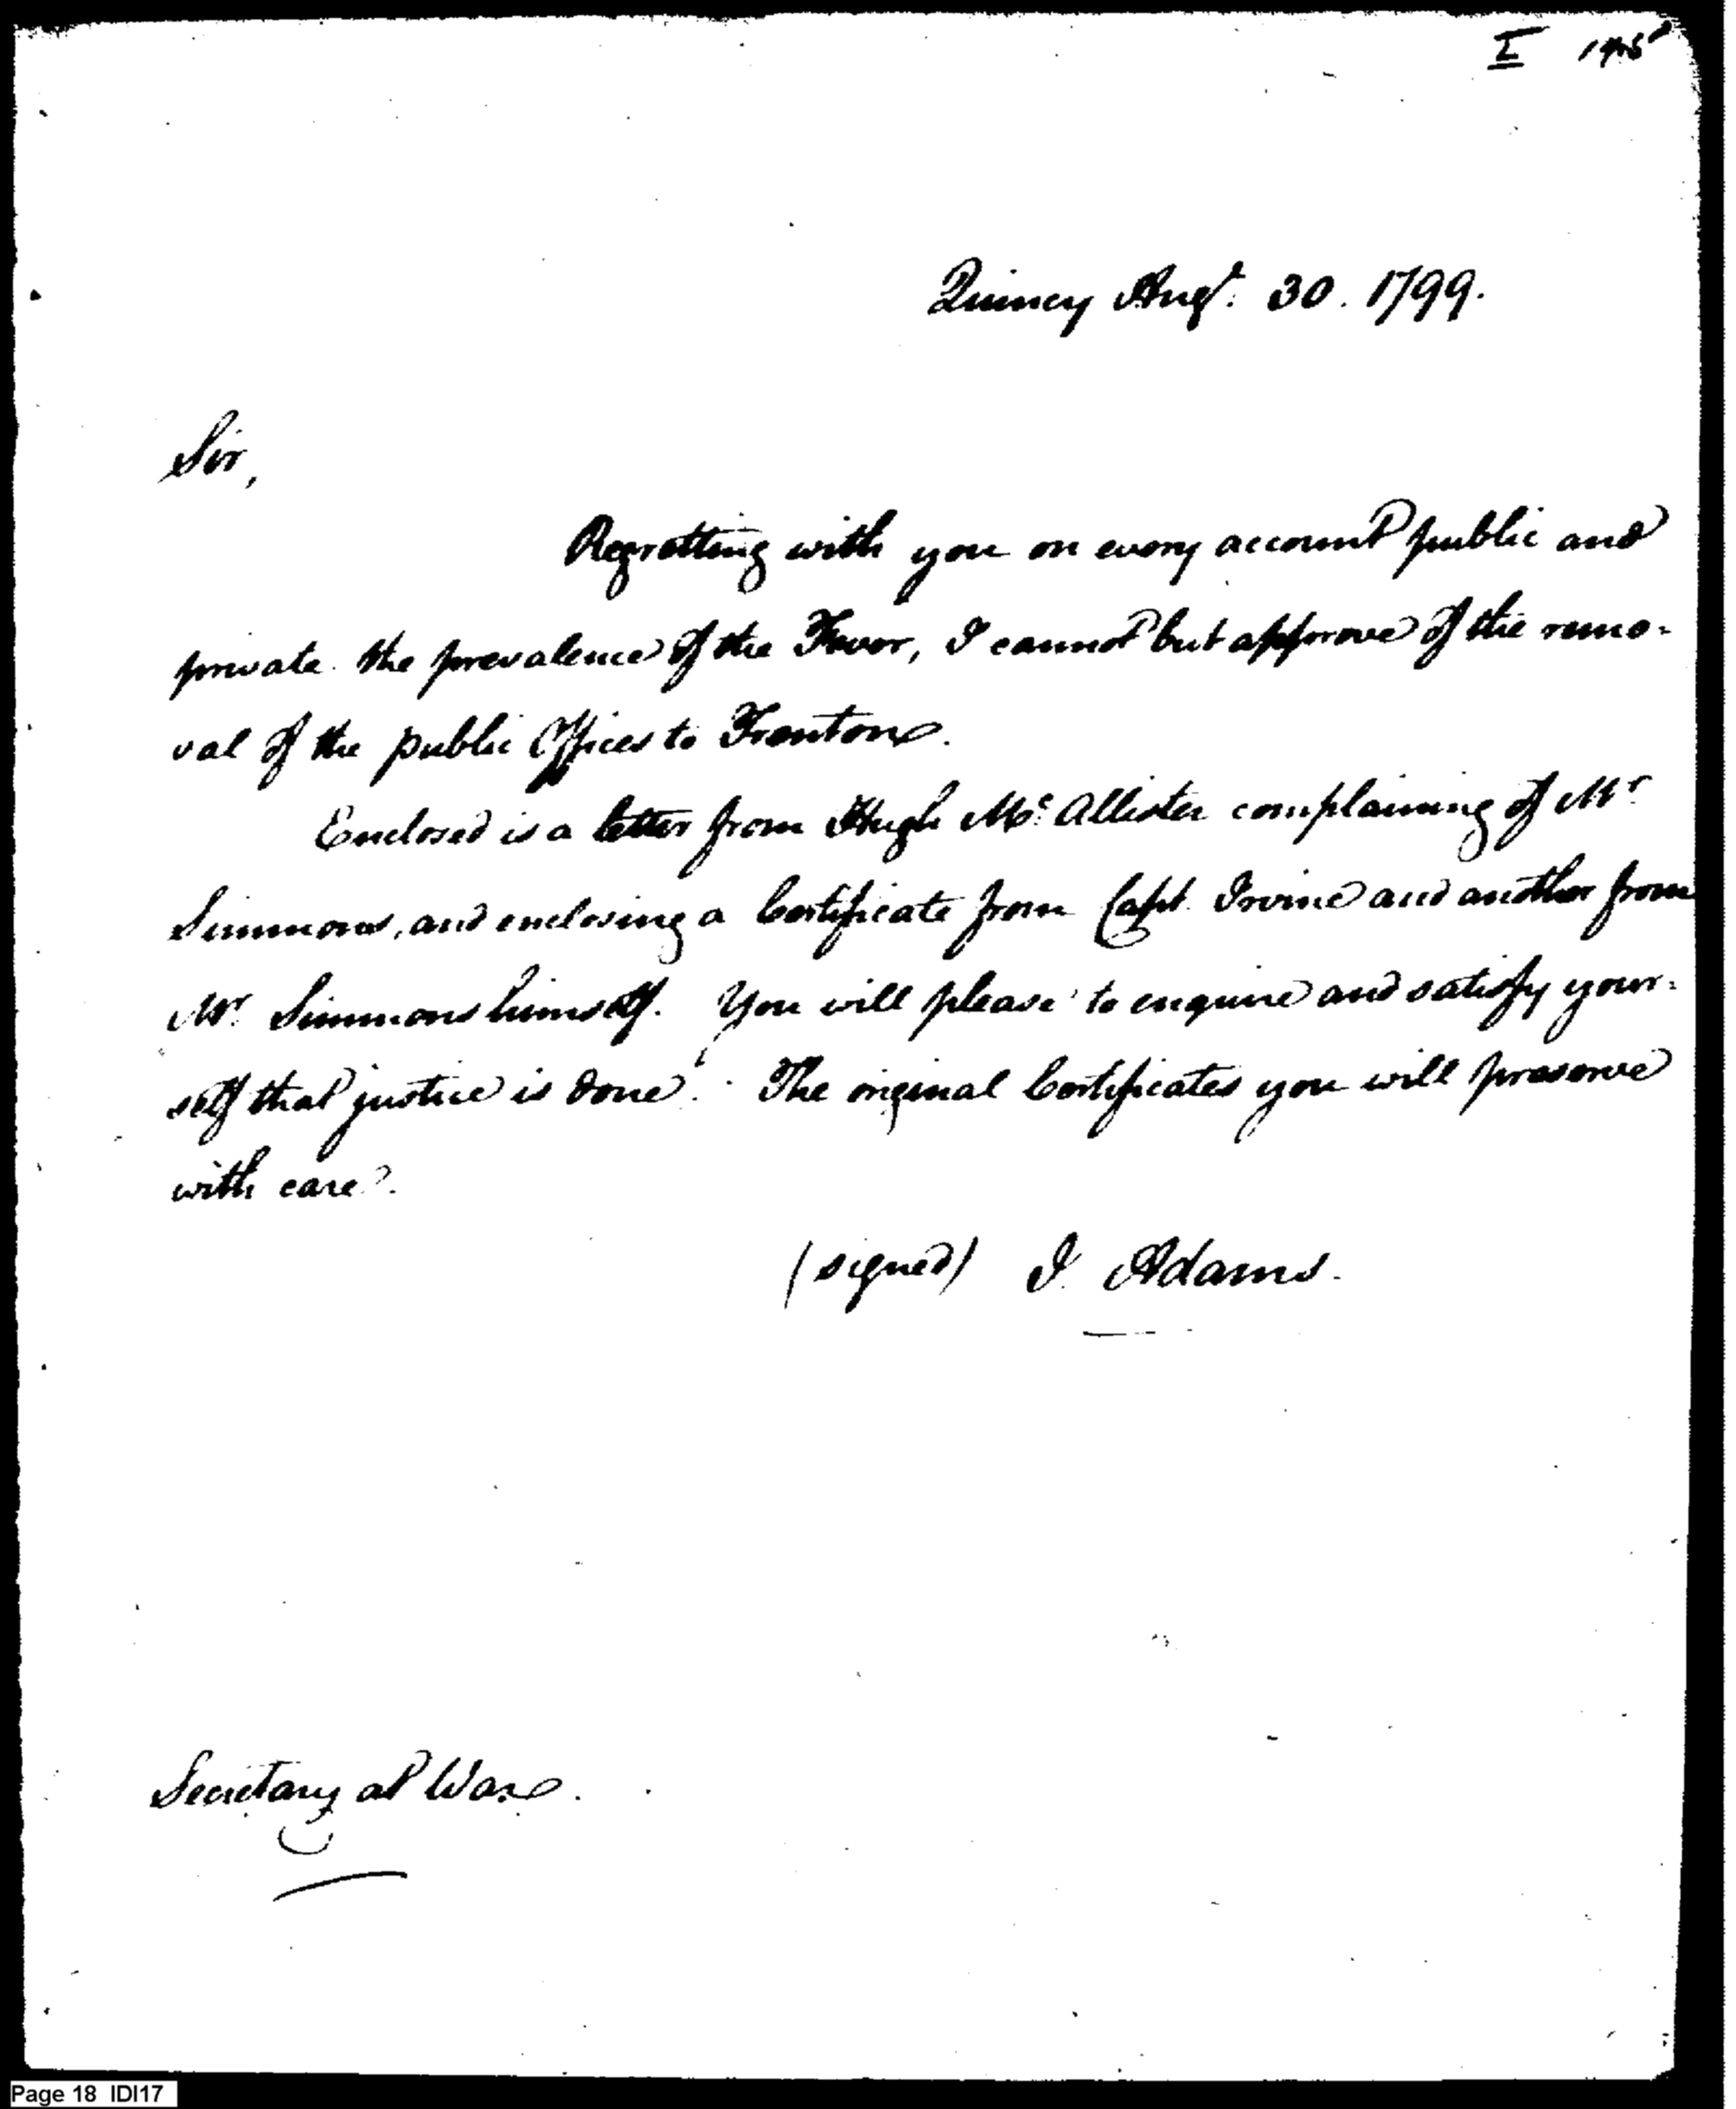 I
Quincy Augt. 30. 1799.
Sir,
Regretting with you on every account public and
private the prevalence of the Fever, I cannot but approve of the remo-
val of the public Offices to Trenton.
Enclosed is a letter from Hugh Mc. Allister complaining of Mr
Simmons, and enclosing a Certificate from Capt Irvine and another from
Mr. Simmons himself. You will please to enquire and satisfy your-
self that justice is done. The original Certificates you will preserve
with care.
(signed) J. Adams.
Secretary at War.
Page 18 IDI17